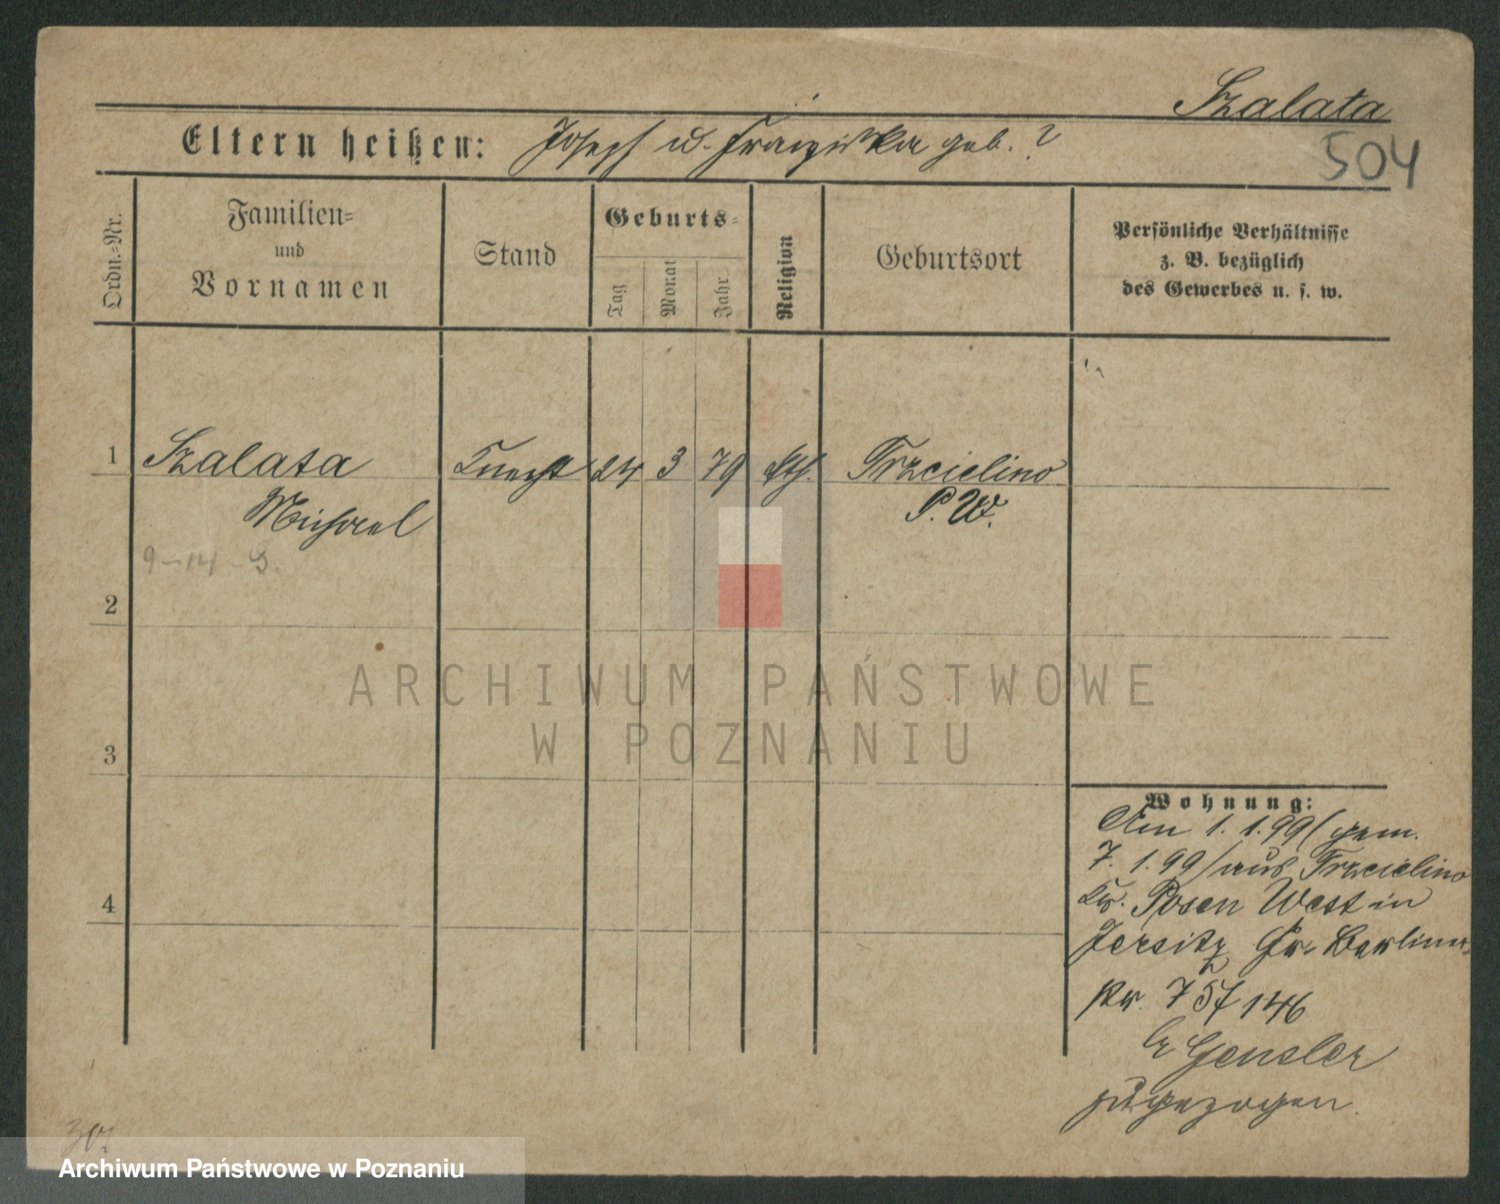 Szalata
504
Eltern heißen: Joseph u. Franziska geb. ?
Ordn.-Nr.
Familien- und Vornamen
Stand
Geburts-
Tag
Monat
Jahr
Religion
Geburtsort
Persönliche Verhältnisse
z. B. bezüglich
des Gewerbes u. s. w.
1 Szalata Knecht 24 3 79 kth. Trzcielino
Michael P. W.
9-14
2
3
4
Wohnung:
Am 1. 1. 99 (gem.
7. 1. 99) aus Trzcielino
Kr. Posen West in
Jersitz Gr. Berliner
146
Gensler
zugezogen.
ARCHIWUM PAŃSTWOWE
W POZNANIU
Archiwum Państwowe w Poznaniu